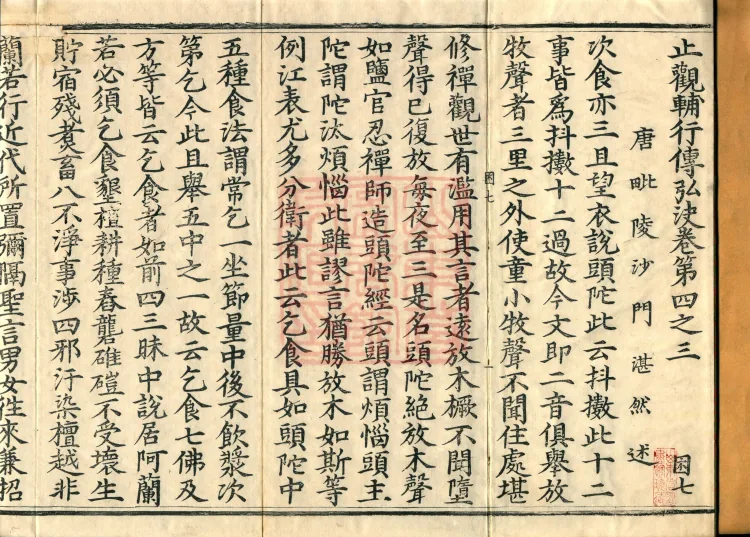 止觀輔行傳弘決卷第四之三 困七
唐毗陵沙門湛然述
次食亦三且望衣說頭陀此云抖擻此十二
事皆為抖擻十二過故今文即二音俱舉放
牧聲者三里之外使童小牧聲不聞住處堪
修禪觀世有濫用其言者遠放木橛不聞墮
聲得已復放每夜至三是名頭陀絕放木聲
困七
如鹽官忍禪師造頭陀經云頭謂煩惱頭主
陀謂陀汰煩惱此雖謬言猶勝放木如斯等
例江表尤多分衛者此云乞食具如頭陀中
五種食法謂常乞一坐節量中後不飲漿次
第乞今此且舉五中之一故云乞食七佛及
方等皆云乞食者如前四三昧中說居阿蘭
若必須乞食墾植耕種舂礱碓磑不受壞生
貯宿殘煑畜八不淨事涉四邪汙染檀越非
蘭若行近代所置彌隔聖言男女往來兼招